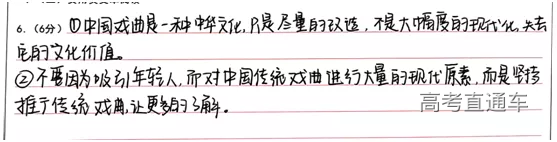 6.(6分)①中国戏曲是一种中华文化,只是尽量的改造,不是大幅度的现代化,失去
它的文化价值。
②不要因为吸引年轻人,而对中国传统戏曲进行大量的现代原素,而是坚持
推广传统戏曲,让更多的了解。
高考直通车